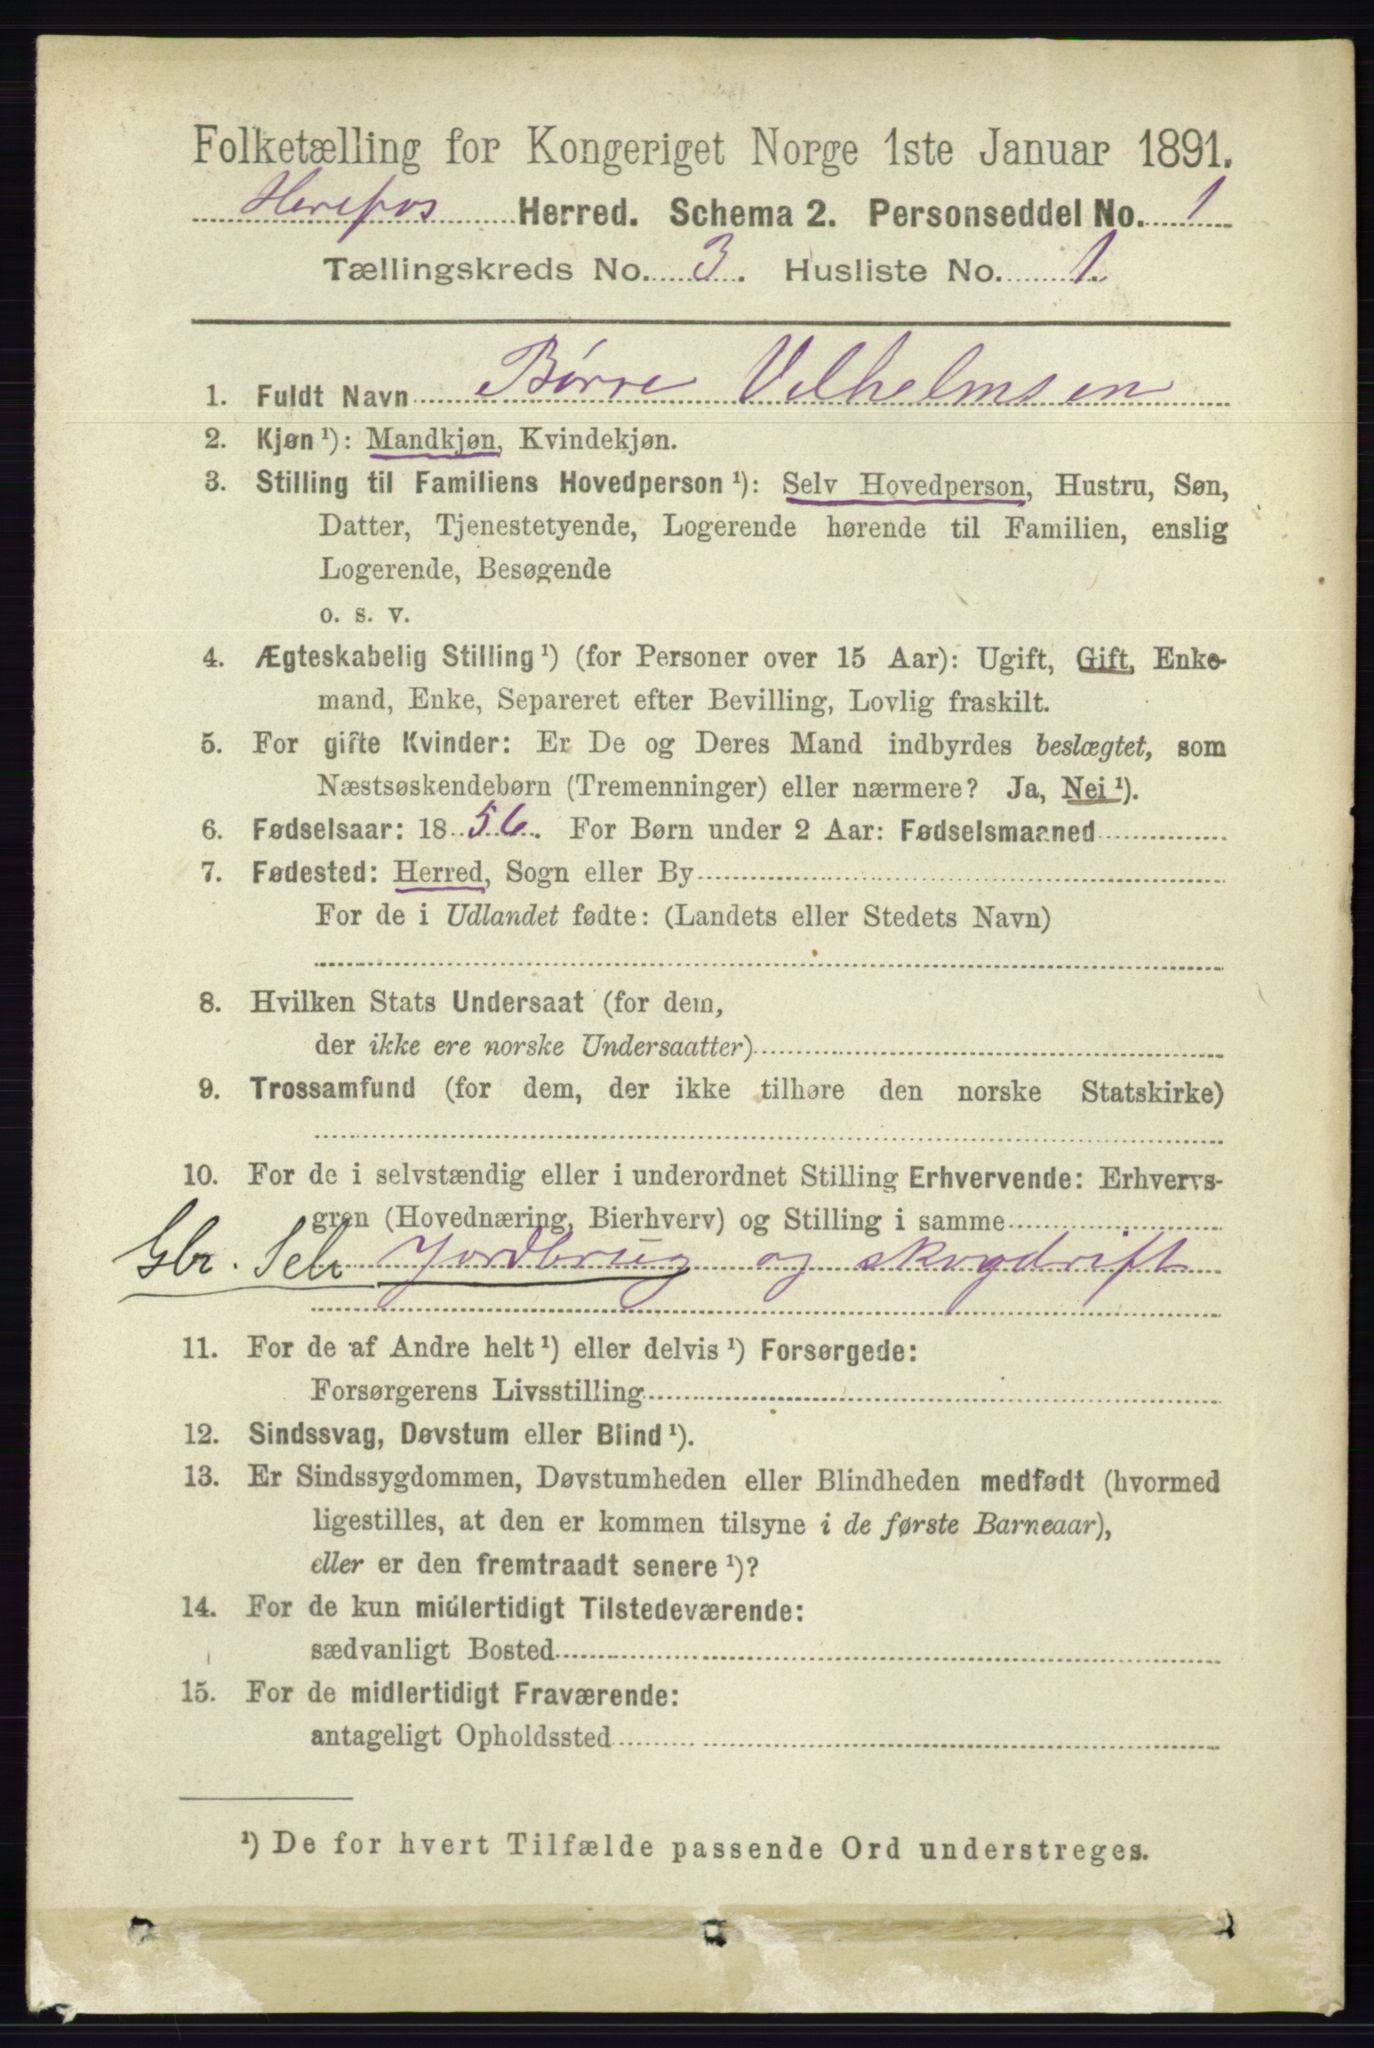 Folketælling for Kongeriget Norge 1ste Januar 1891.
Herefos Herred. Schema 2. Personseddel No. 1
Tællingskreds No. 3. Husliste No. 1.
1. Fuldt Navn Børre Vilhelmsen
2. Kjøn ¹): Mandkjøn, Kvindekjøn.
3. Stilling til Familiens Hovedperson ¹): Selv Hovedperson, Hustru, Søn,
Datter, Tjenestetyende, Logerende hørende til Familien, enslig
Logerende, Besøgende
o. s. v.
4. Ægteskabelig Stilling ¹) (for Personer over 15 Aar): Ugift, Gift, Enke-
mand, Enke, Separeret efter Bevilling, Lovlig fraskilt.
5. For gifte Kvinder: Er De og Deres Mand indbyrdes beslægtet, som
Næstsøskendebørn (Tremenninger) eller nærmere? Ja, Nei ¹).
6. Fødselsaar: 1856. For Børn under 2 Aar: Fødselsmaaned
7. Fødested: Herred, Sogn eller By
For de i Udlandet fødte: (Landets eller Stedets Navn)
8. Hvilken Stats Undersaat (for dem,
der ikke ere norske Undersaatter)
9. Trossamfund (for dem, der ikke tilhøre den norske Statskirke)
10. For de i selvstændig eller i underordnet Stilling Erhvervende: Erhvervs-
gren (Hovednæring, Bierhverv) og Stilling i samme
Gbr. Selv Jordbrug og skogdrift
11. For de af Andre helt ¹) eller delvis ¹) Forsørgede:
Forsørgerens Livsstilling
12. Sindssvag, Døvstum eller Blind ¹).
13. Er Sindssygdommen, Døvstumheden eller Blindheden medfødt (hvormed
ligestilles, at den er kommen tilsyne i de første Barneaar),
eller er den fremtraadt senere ¹)?
14. For de kun midlertidigt Tilstedeværende:
sædvanligt Bosted
15. For de midlertidigt Fraværende:
antageligt Opholdssted
¹) De for hvert Tilfælde passende Ord understreges.